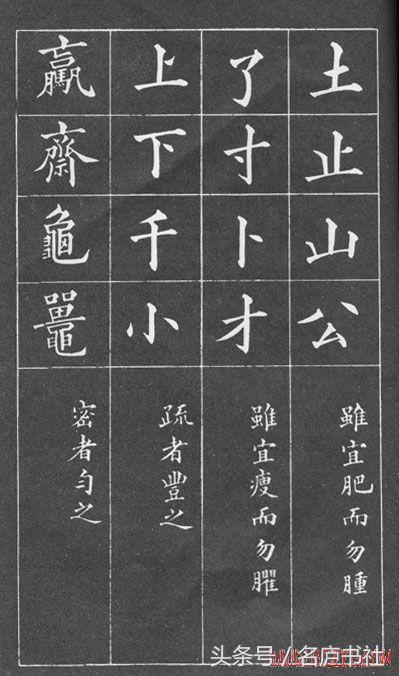 土止山公
雖宜肥而勿腫
了寸卜才
雖宜瘦而勿臞
上下千小
疏者豐之
齋龜鼉
密者勻之
头条号 / 名庐书社